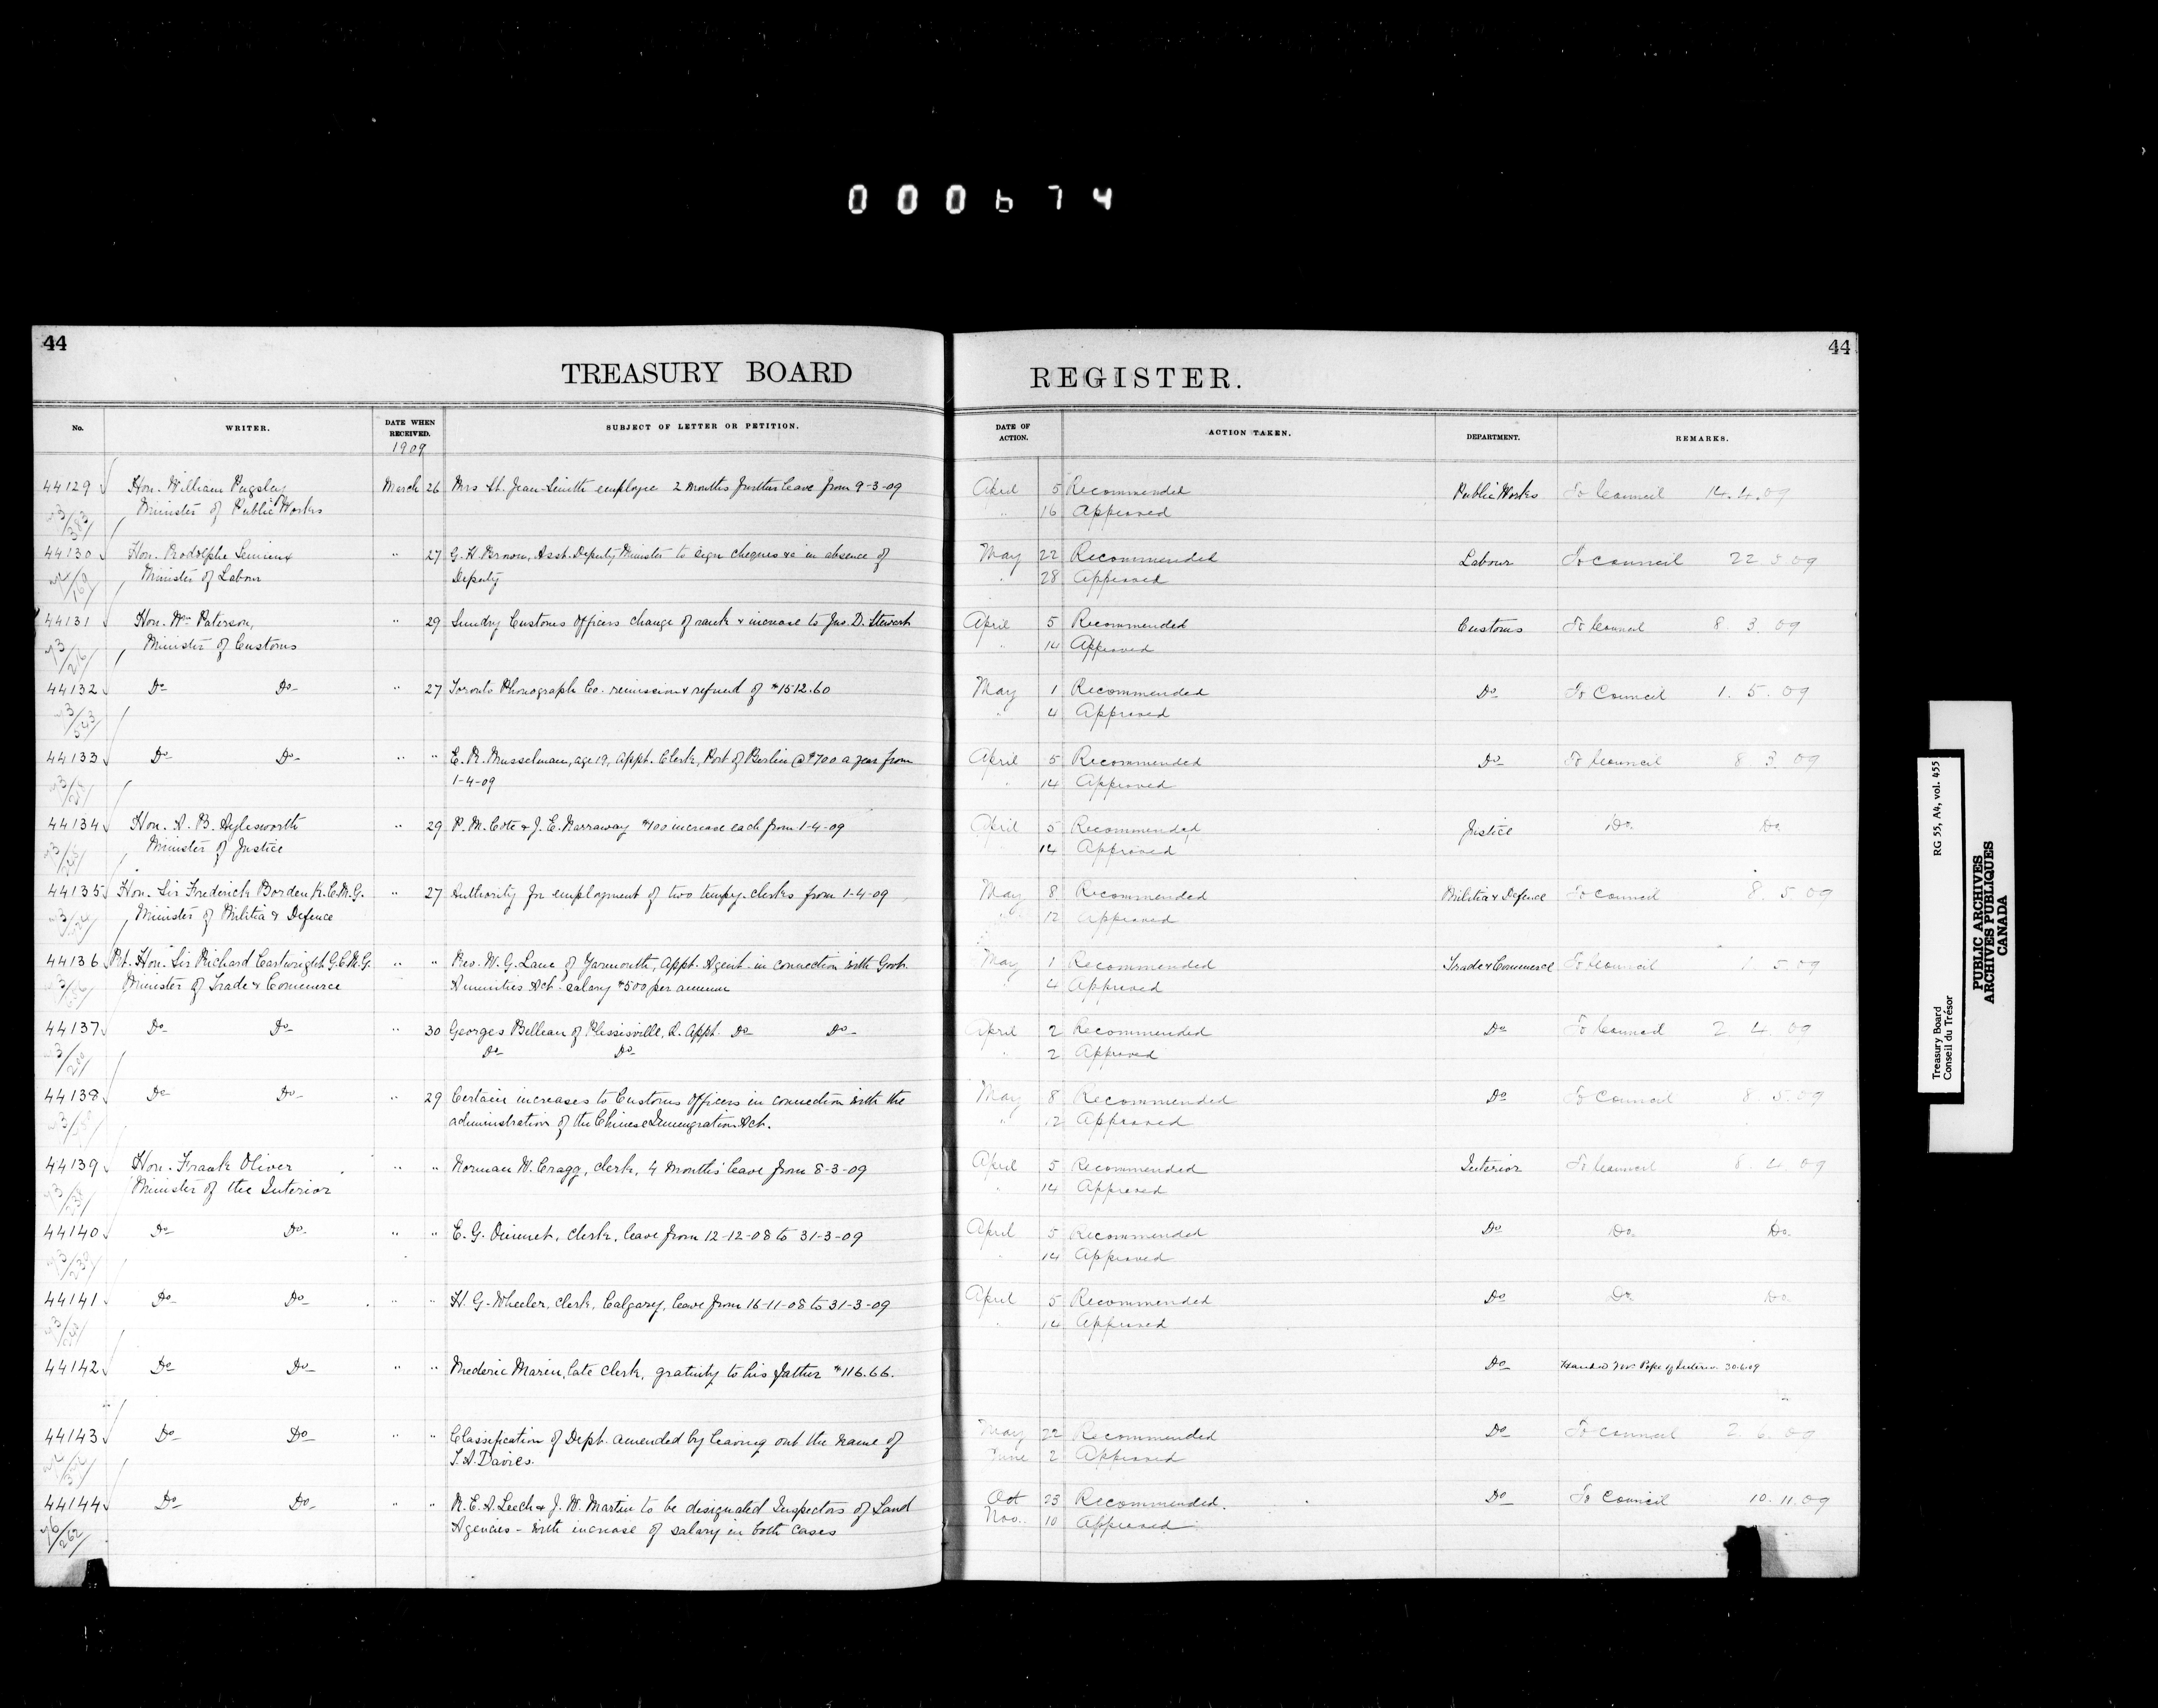 000674
44
TREASURY BOARD
No.
WRITER.
DATE WHEN RECEIVED.
SUBJECT OF LETTER OR PETITION.
1909
44129 Hon. William Pugsley March 26 Mrs St. Jean-Smith employee 2 months further leave from 9-3-09
Minister of Public Works
44130 Hon. Rodolphe Lemieux " 27 G. H. Brown, Asst. Deputy Minister to sign cheques &c in absence of
Minister of Labour Deputy
44131 Hon. Wm Paterson, " 29 Sundry Customs Officers change of rank & increase to Jno. D. Stewart
Minister of Customs
44132 Do Do " 27 Toronto Phonograph Co. remission & refund of $1512.60
44133 Do Do " " E. R. Musselman, age 19, Appt. Clerk, Port of Berlin @ $700 a year from
1-4-09
44134 Hon. A. B. Aylesworth " 29 P. M. Cote & J. E. Narraway $100 increase each from 1-4-09
Minister of Justice
44135 Hon. Sir Frederick Borden K.C.M.G. " 27 Authority for employment of two tempy. clerks from 1-4-09
Minister of Militia & Defence
44136 Rt. Hon. Sir Richard Cartwright G.C.M.G. " " Rev. W. G. Lane of Yarmouth, Appt. Agent in connection with Govt.
Minister of Trade & Commerce Annuities Act. salary $500 per annum
44137 Do Do " 30 Georges Belleau of Plessisville, Q. Appt. Do Do
Do Do
44138 Do Do " 29 Certain increases to Customs Officers in connection with the
administration of the Chinese Immigration Act.
44139 Hon. Frank Oliver " " Norman W. Cragg, clerk, 4 months' leave from 8-3-09
Minister of the Interior
44140 Do Do " " E. G. Ouimet, clerk, leave from 12-12-08 to 31-3-09
44141 Do Do " " H. G. Wheeler, clerk, Calgary, leave from 16-11-08 to 31-3-09
44142 Do Do " " Mederic Marin, late clerk, gratuity to his father $116.66.
44143 Do Do " " Classification of Dept. amended by leaving out the name of
T. A. Davies.
44144 Do Do " " R. E. A. Leech & J. W. Martin to be designated Inspectors of Land
Agencies - with increase of salary in both cases
44
REGISTER.
DATE OF ACTION.
ACTION TAKEN.
DEPARTMENT.
REMARKS.
April 5 Recommended Public Works To Council 14.4.09
" 16 Approved
May 22 Recommended Labour To Council 22 5 09
" 28 Approved
April 5 Recommended Customs To Council 8. 3. 09
" 14 Approved
May 1 Recommended Do To Council 1. 5. 09
" 4 Approved
April 5 Recommended Do To Council 8 3. 09
" 14 Approved
April 5 Recommended Justice Do. Do.
14 Approved
May 8 Recommended Militia & Defence To Council 8. 5. 09
" 12 Approved
May 1 Recommended Trade & Commerce To Council 1. 5. 09
" 4 Approved
April 2 Recommended Do To Council 2 4. 09
" 2 Approved
May 8 Recommended Do To Council 8. 5. 09
" 12 Approved
April 5 Recommended Interior To Council 8. 4. 09
" 14 Approved
April 5 Recommended Do Do. Do.
" 14 Approved
April 5 Recommended Do Do. Do.
" 14 Approved
Do Handed Mr. Pope of Interior 30.6.09
May 22 Recommended Do To Council 2. 6. 09
June 2 Approved
Oct 25 Recommended. Do To Council 10. 11. 09
Nov. 10 Approved
Treasury Board RG 55, A4, vol. 455
Conseil du Trésor
PUBLIC ARCHIVES
ARCHIVES PUBLIQUES
CANADA